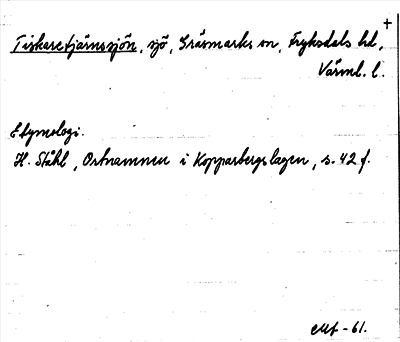 +
Tiskaretjärnssjön, sjö, Gräsmarks sn, Fryksdals hd,
Värml. l.
Etymologi.
H. Ståhl, Ortnamnen i Kopparbergslagen, s. 42 f.
-61.